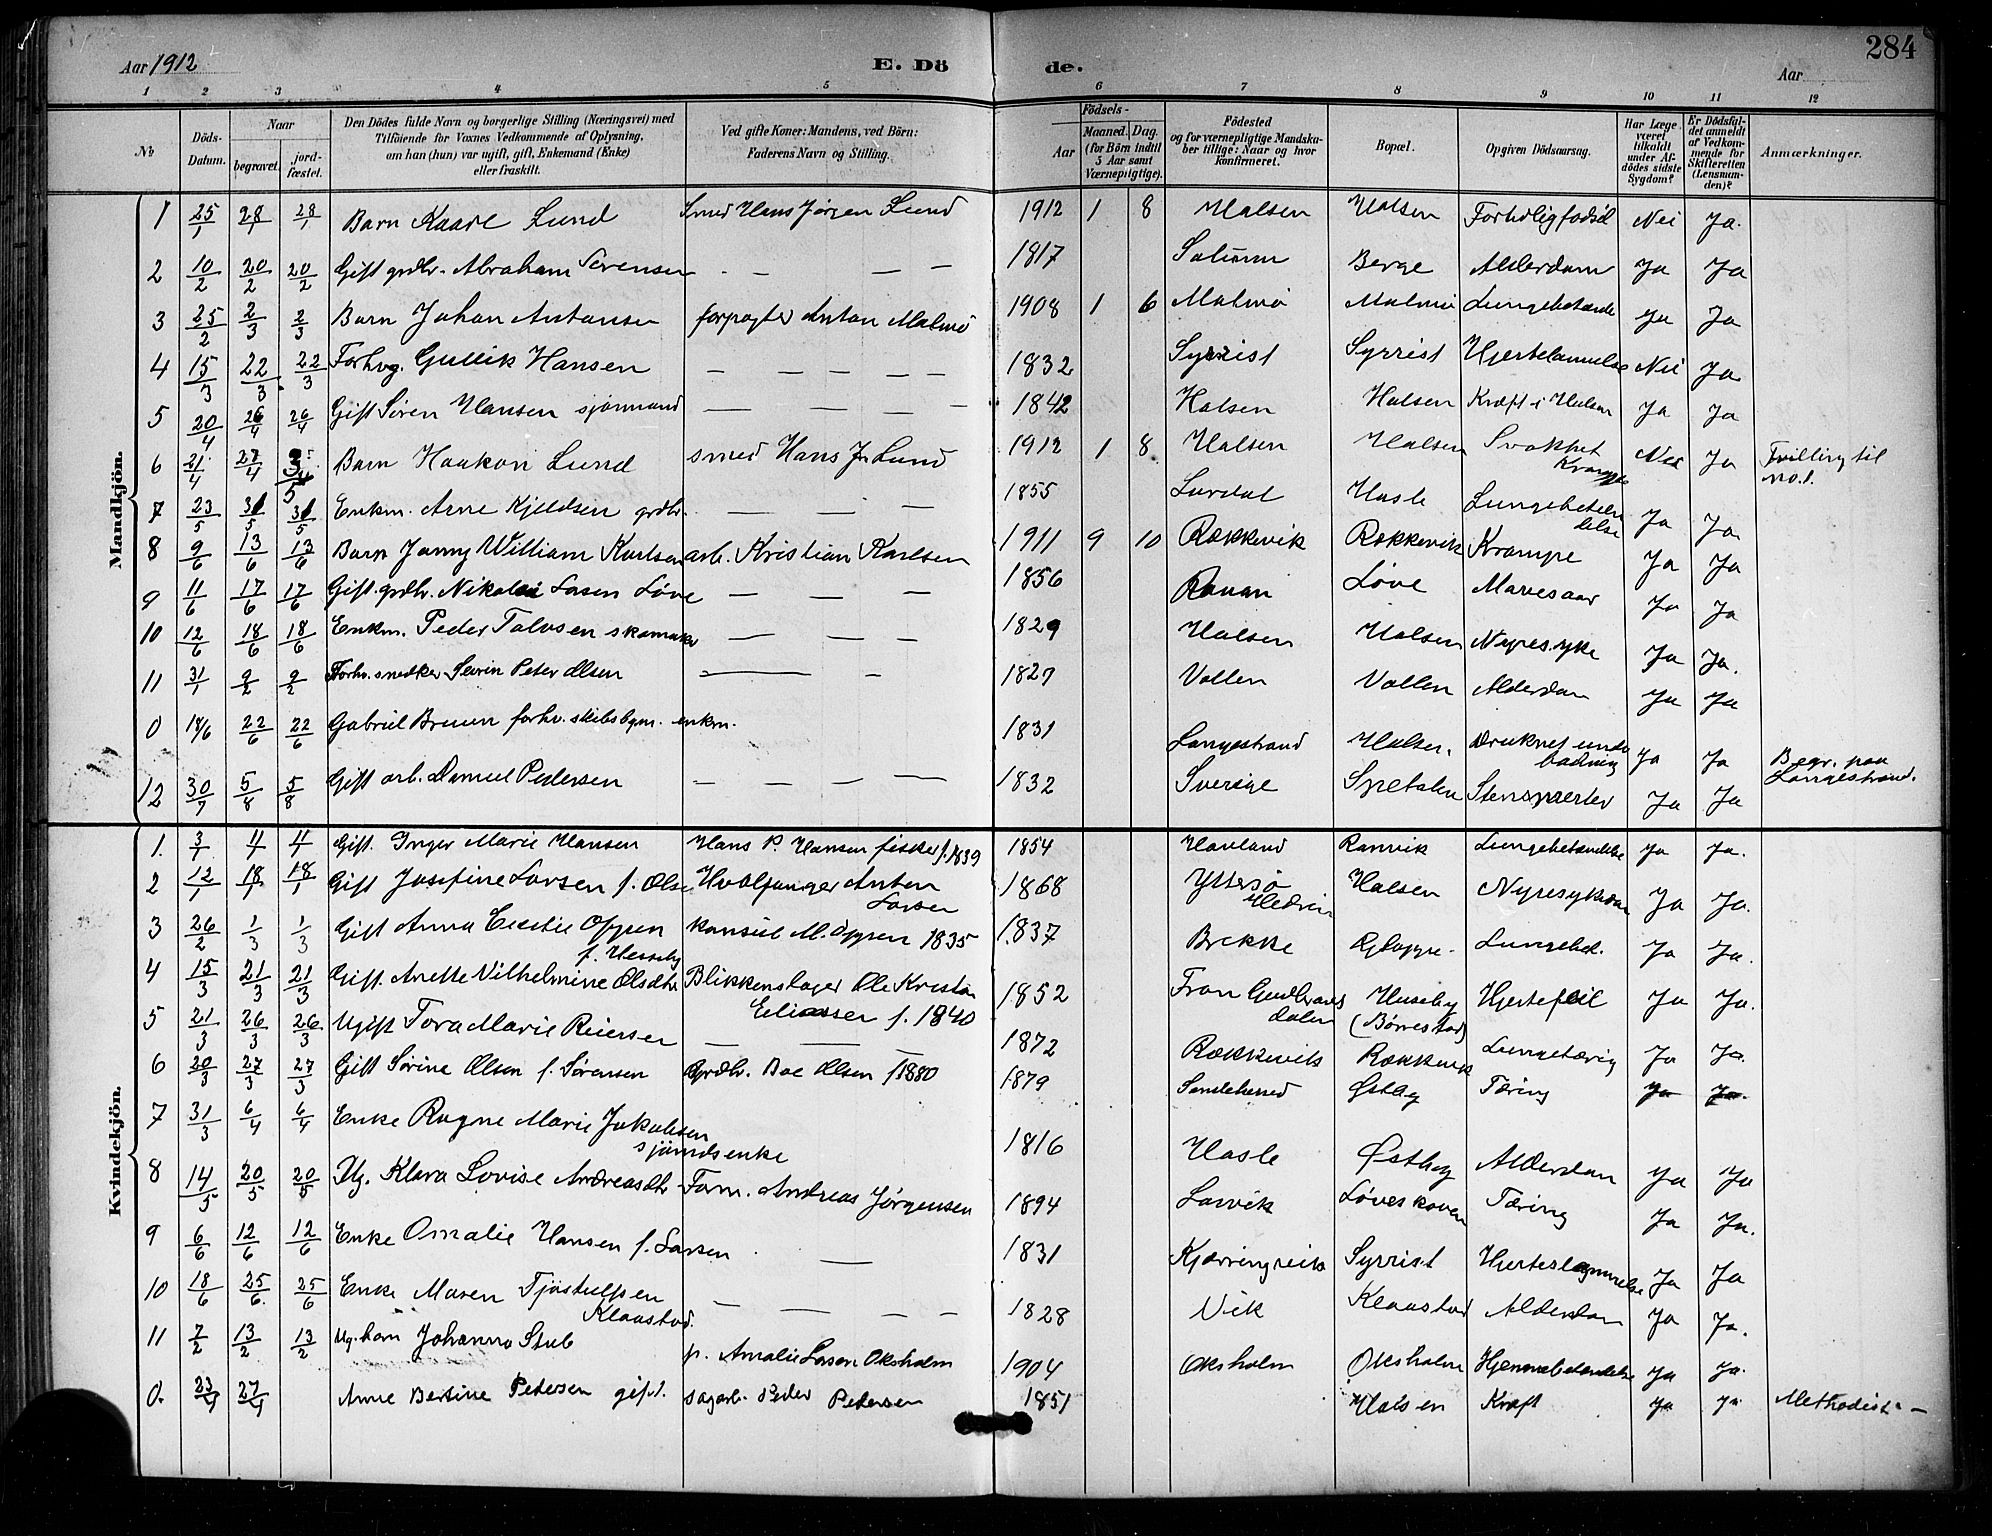 Aar 1912
E. Dö de.
Aar
284
1 2 3 4 5 6 7 8 9 10 11 12
No
Döds-Datum.
Naar begravet. jordfæstet.
Den Dödes fulde Navn og borgerlige Stilling (Næringsvei) med Tilföiende for Voxnes Vedkommende af Oplysning, om han (hun) var ugift, gift, Enkemand (Enke) eller fraskilt.
Ved gifte Koner: Mandens, ved Börn: Faderens Navn og Stilling.
Födsels-
Aar Maaned. Dag.
(for Börn indtil 5 Aar samt Værnepligtige).
Födested og for værnepligtige Mandskaber tillige: Naar og hvor Konfirmeret.
Bopæl.
Opgiven Dödsaarsag.
Har Læge været tilkaldt under Afdödes sidste Sygdom?
Er Dödsfaldet anmeldt af Vedkommende for Skifteretten (Lensmanden)?
Anmærkninger.
Mandkjön.
1 25/1 28/1 28/1 Barn Kaare Lund Smed Hans Jørgen Lund 1912 1 8 Halsen Halsen Nei Ja.
2 10/2 20/2 20/2 Gift grdbr. Abraham Sørensen — — — 1817 Solumn Berge Alderdom Ja Ja
3 25/2 2/3 2/3 Barn Johan Antonsen forpagter Anton Malmø 1908 1 6 Malmø Malmø Lungebetænde Ja Ja
4 15/3 22/3 22/3 Forhvg. Gullik Hansen — — — — — 1832 Syrrist Syrrist Hjertelammelse Nei Ja
5 20/4 26/4 26/4 Gift Søren Hansen sjømand — — — — 1842 Halsen Halsen Kræft i Halsen Ja Ja
6 21/4 27/4 Barn Haakon Lund smed Hans J. Lund 1912 1 8 Halsen Halsen Svakhet Krampe Nei Ja Tvilling til no. 1.
7 23/5 31/5 31/5 Enkm. Arne Kjeldsen grdbr. — — — — 1855 Lardal Hasle Lungebetændelse Ja Ja
8 9/6 13/6 13/6 Barn Jonny William Karlsen arb. Kristian Karlsen 1911 9 10 Rækkevik Rækkevik Krampe Ja Ja
9 11/6 17/6 17/6 Gift grdbr. Nikolai Larsen Løve — — — 1856 Løve Mavesaar Ja Ja
10 12/6 18/6 18/6 Enkm. Peder skomaker — — — 1829 Halsen Halsen Nyresyke Ja Ja.
11 31/1 9/2 9/2 Forhv. snedker Sevrin Peter Olsen — — 1827 Vollen Vollen Alderdom Ja Ja
0 18/6 22/6 22/6 Gabriel Bruun forhv. skibsbgm. enkm. 1831 Langestrand Halsen. Druknet under badning Ja Ja Begr. paa Langestrand.
12 30/7 5/8 5/8 Gift arb. Daniel Pedersen — — — — 1832 Sverige Ja Ja
Kvindekjön.
1. 3/1 Gift. Inger Marie Hansen Hans P. Hansen fisker f. 1839 1854 Havland Ranvik Lungebetændelse Ja Ja.
2 12/1 18/1 18/1 Gift Josefine Larsen f. Olsen Hvalfanger Anton Larsen 1868 Yttersø Hedrum Halsen Nyresykdom Ja Ja.
3 26/2 1/3 1/3 Gift Anna Cecilie Oppen f. Hesseby konsul M. Oppen 1835 1837 Brekke Lungebet. Ja Ja.
4 15/3 21/3 21/3 Gift. Anette Vilhelmine Olsdtr Blikkenslager Ole Kristian Eliassen f. 1840 1852 Fron Gudbrandsdalen Huseby (Børrestad) Hjertefeil Ja Ja.
5 21/3 26/3 26/3 Ugift Tora Marie Reiersen — — — 1872 Rækkevik Rækkevik Lungetæring Ja Ja.
6 20/3 27/3 27/3 Gift Sørine Olsen f. Sørensen Grdbr. Boe Olsen f 1880 1879 Sandeherred Østby Tæring Ja Ja.
7 31/3 6/4 6/4 Enke Ragne Marie Jakobsen sjømdsenke 1816 Hasle Østby Alderdom Ja Ja
8 14/5 20/5 20/5 Ug. Klara Lovise Andreasdtr Form. Andreas Jørgensen 1894 Larvik Løveskoven Tæring Ja Ja.
9 6/6 12/6 12/6 Enke Amalie Hansen f. Larsen — 1831 Kjærringvik Syrrist Hjerteslammelse Ja Ja
10 18/6 25/6. 25/6 Enke Maren Tjøstulfsen Klaastad. — — — — 1828 Vik Klaastad Alderdom Ja Ja.
11 7/2 13/2 13/2 Ug. barn Johanna Stub p. Amalie Larsen Oksholm 1904 Oksholm Oksholm Hjernebetændelse Ja Ja.
0. 23/1 27/1 Anne Bertine Petersen gift. sagarb. Peder Petersen 1851 Halsen Kræft Ja Ja Methodist. —